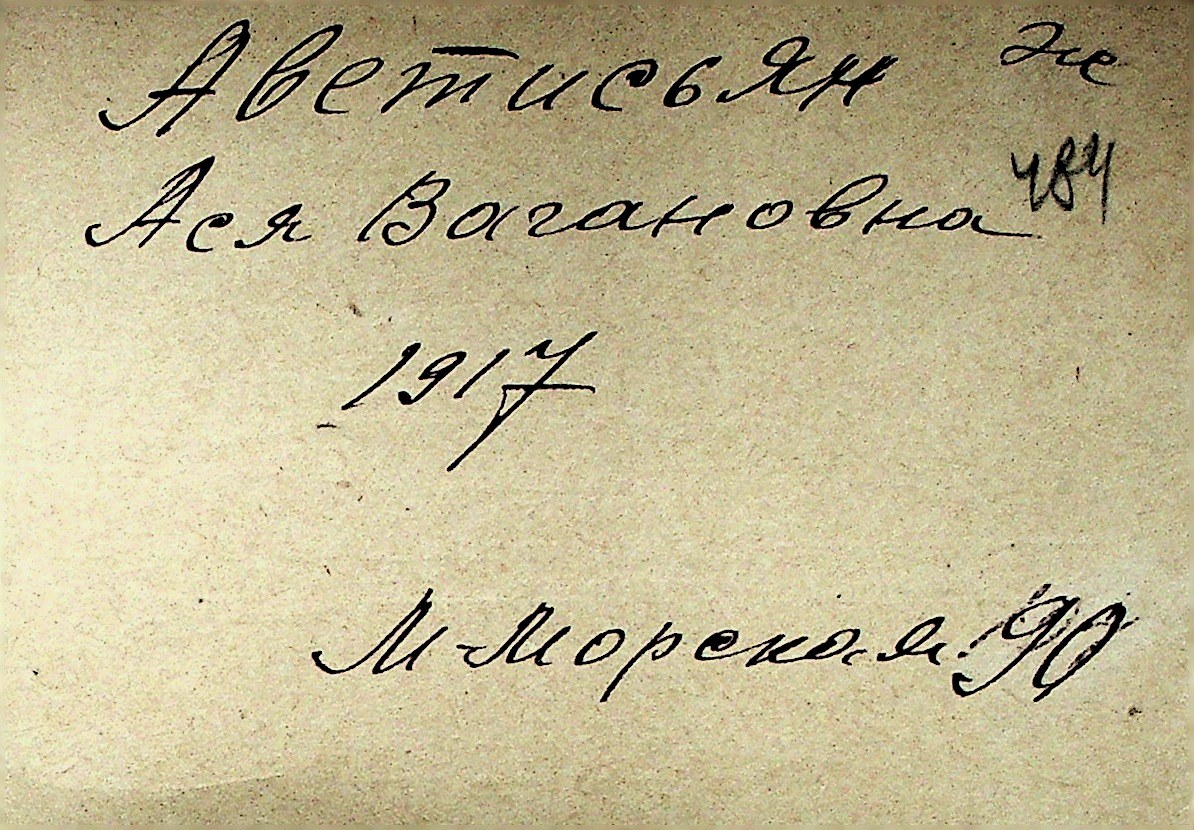 Аветисьян же
484
Ася Вагановна
1917
М-Морская 90